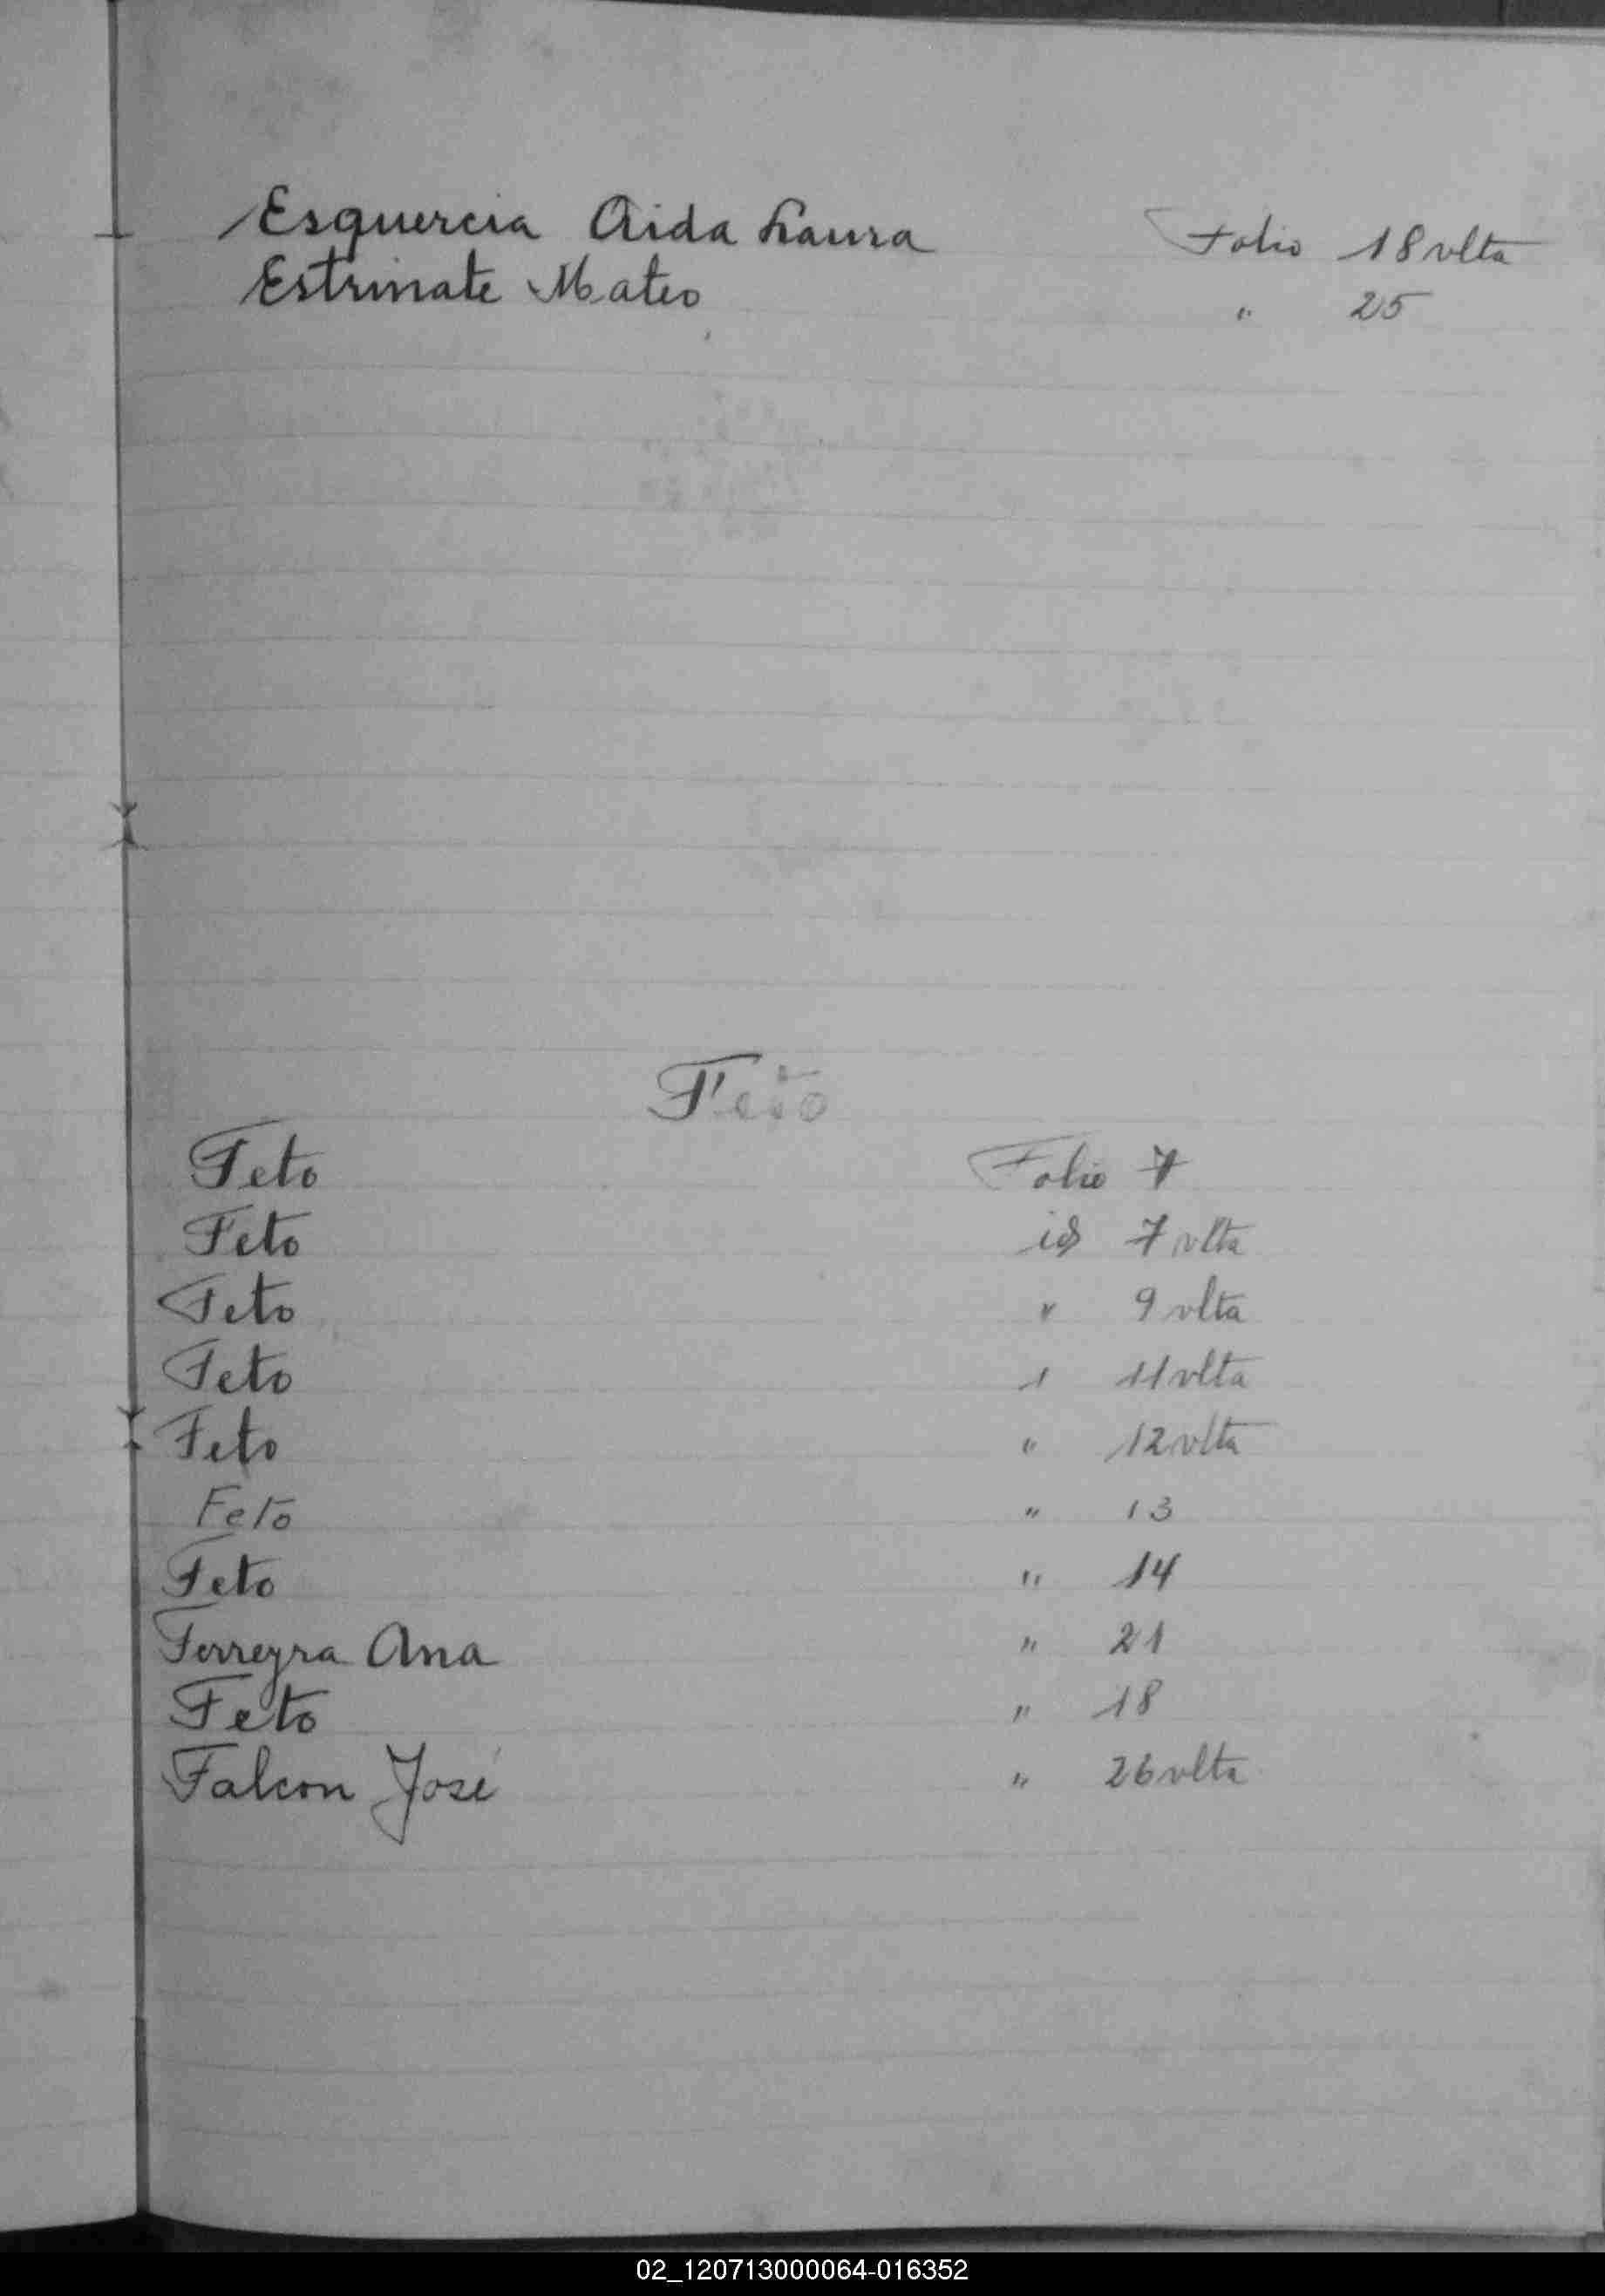 Esquercia Aida Laura Folio 18 vlta
Estrinate Mateo " 25
Feto
Feto Folio 7
Feto id 7 vlta
Feto " 9 vlta
Feto " 11 vlta
Feto " 12 vlta
Feto " 13
Feto " 14
Ferreyra Ana " 21
Feto " 18
Falcon José " 26 vlta
02_120713000064-016352